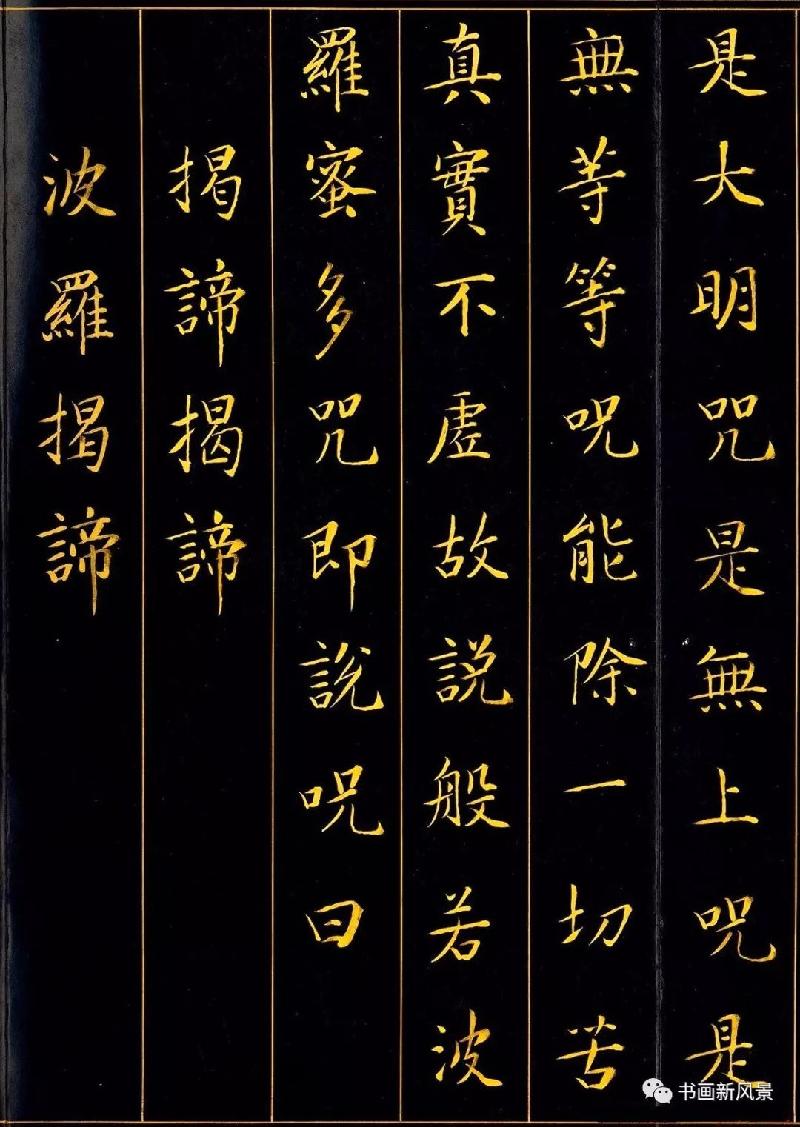 是大明咒是無上呪是
無等等呪能除一切苦
真實不虛故説般若波
羅蜜多咒即說呪曰
揭諦揭諦
波羅揭諦
书画新风景